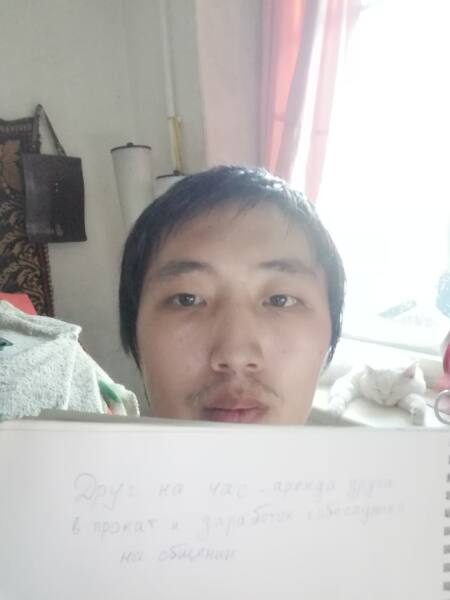 Друг на час - аренда друга
в прокат и заработок
на общении